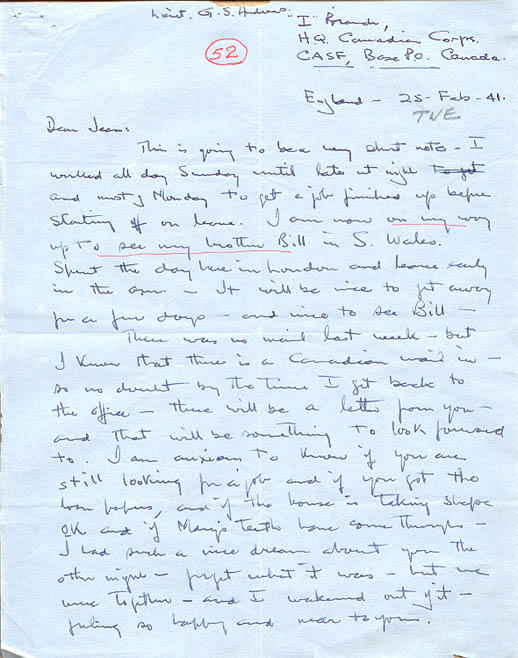 Lieut. G. S. Andrews.
I Branch,
52
H.Q. Canadian Corps.
CASF, Base P.O. Canada.
England – 25 – Feb – 41.
TUE
Dear Jean:
This is going to be a very short note – I
worked all day Sunday until late at night to get
and most of Monday to get a job finished up before
starting off on leave. I am now on my way
up to see my brother Bill in S. Wales.
Spent the day here in London and leave early
in the a.m. – It will be nice to get away
for a few days – and nice to see Bill –
There was no mail last week – but
I know that there is a Canadian mail in –
so no doubt by the time I get back to
the office – there will be a letter from you –
and that will be something to look forward
to. I am anxious to know if you are
still looking for a job and if you got the
loan papers, and if the house is taking shape
OK and if Mary's teeth have come through –
I had such a nice dream about you the
other night – forget what it was – but we
were together – and I wakened out of it –
feeling so happy and near to you.